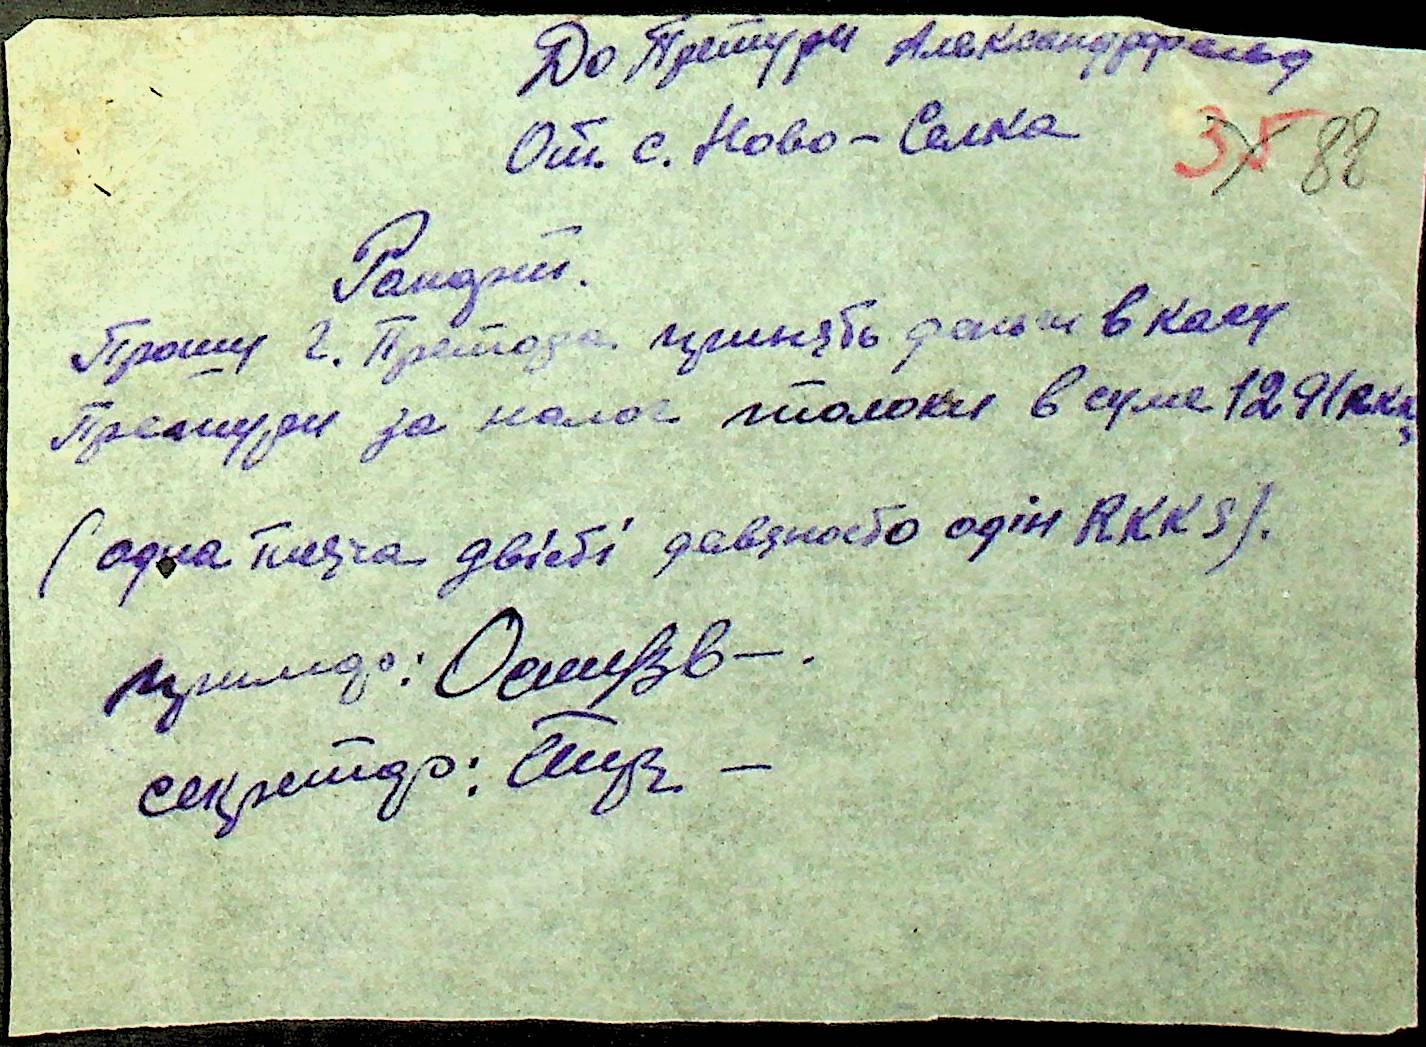 До Претури Александрфельд
От. с. Ново-Селка
35 88
Рапорт.
Прошу г. Претора принять деньги в касу
Претури за налог толоки в суме 1291 RKKS
(одна тисяча двісті девяносто один RKKS).
примар:
секретар: